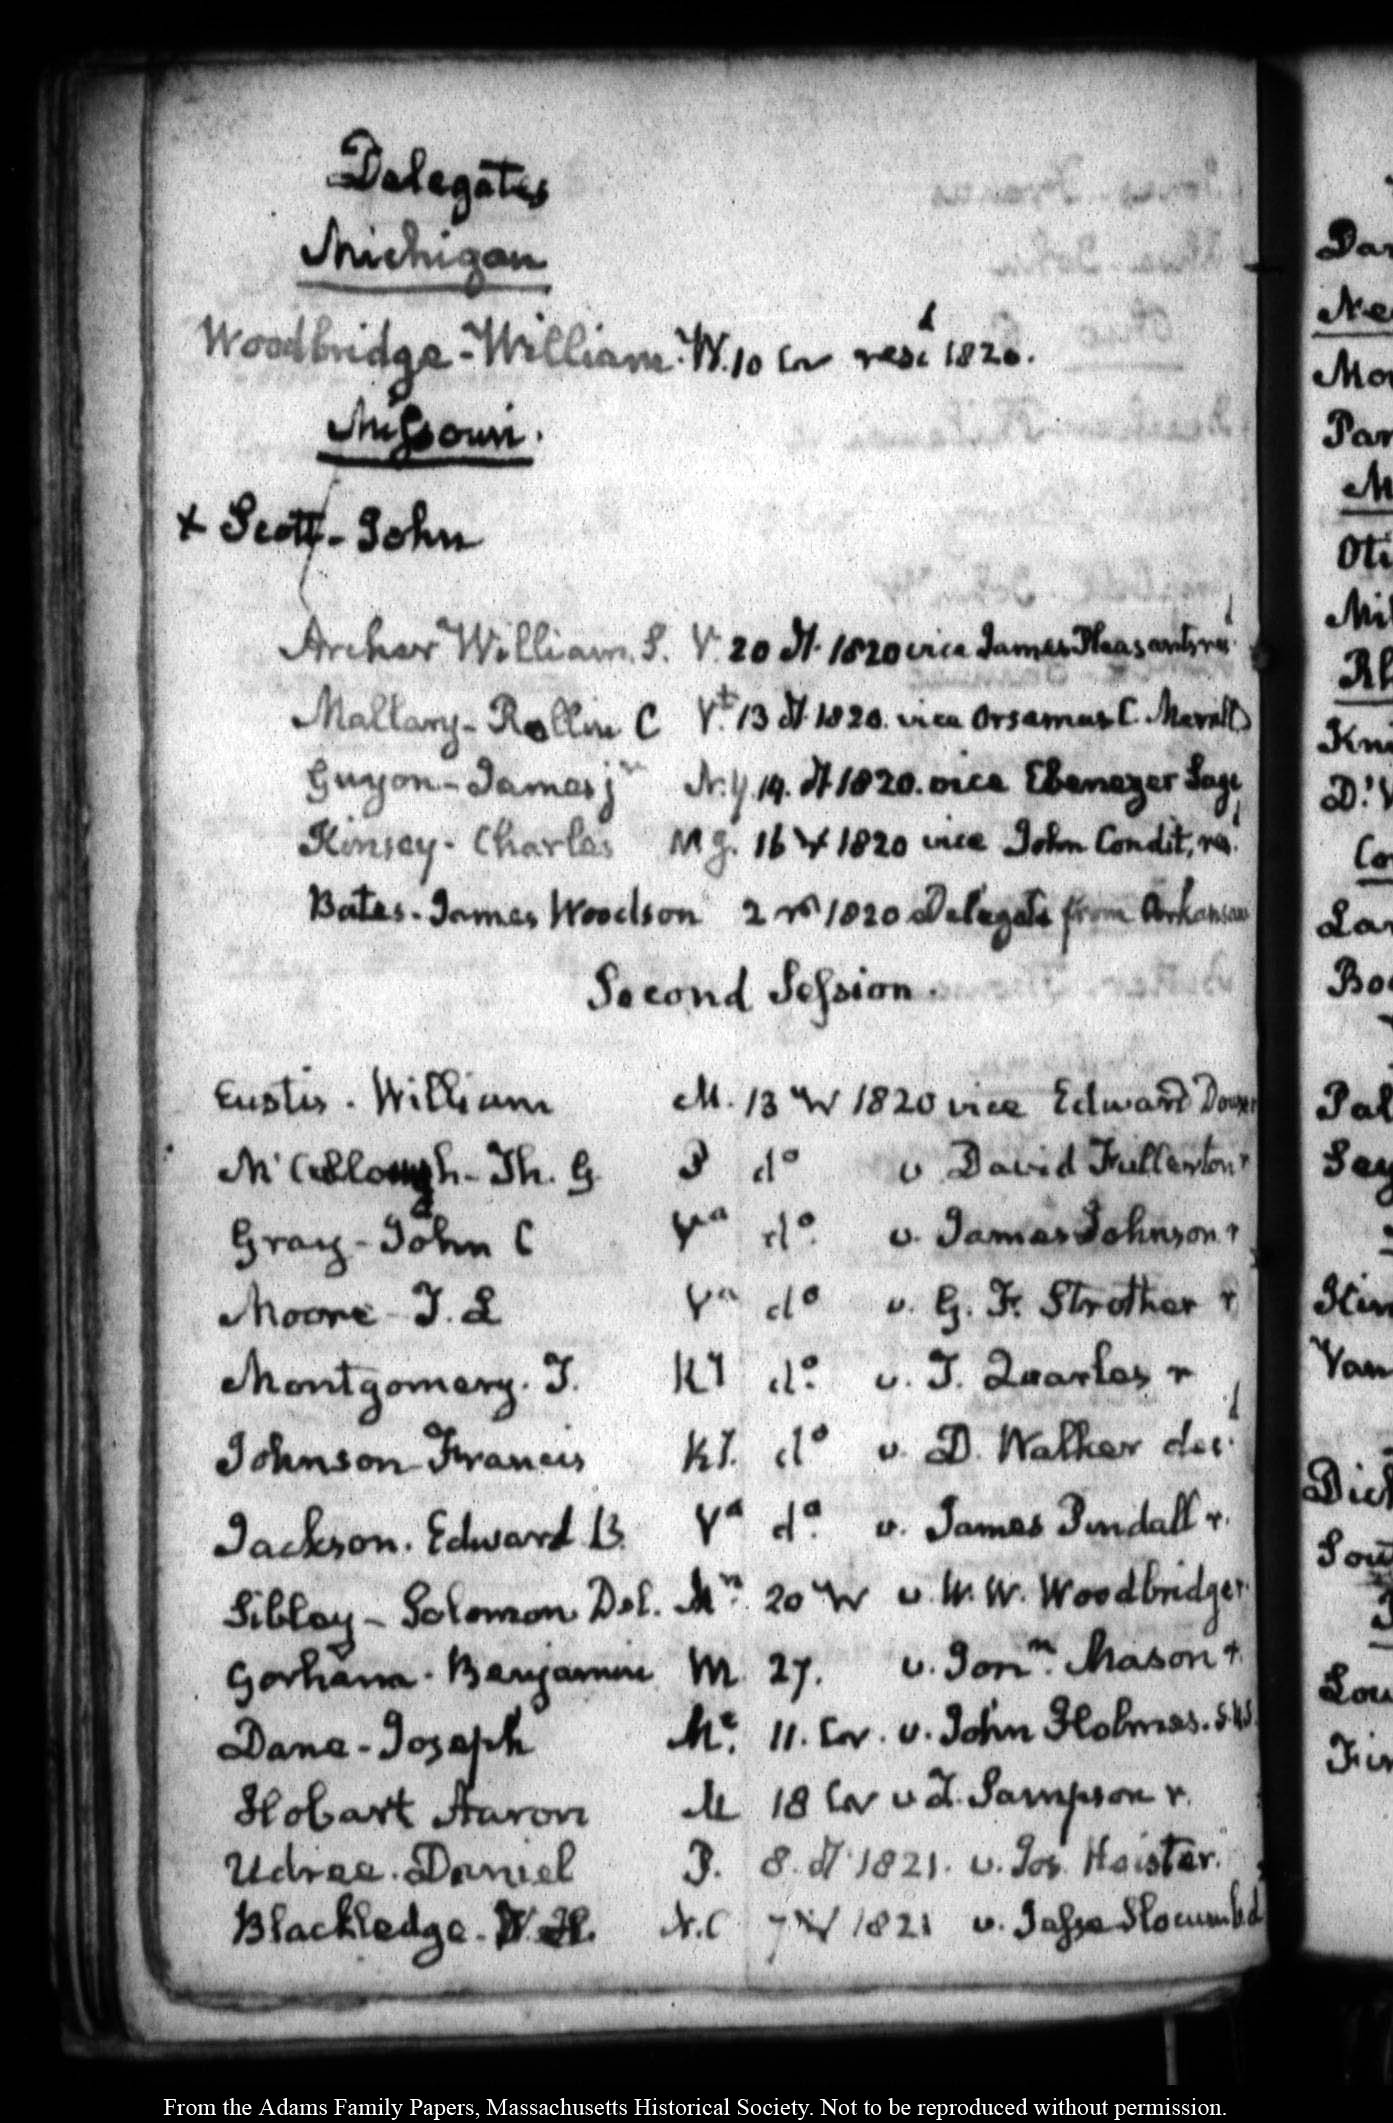 Delegates
Michigan
Woodbridge - William. W. 10 Cor resd 1820.
Missouri.
+ Scott - John
Archer William. S. V. 20 1820 vice James Pleasants resd
Mallary - Rollin C Vt. 13 1820. vice Orsamus C. Merrill
Guyon - James jr N.Y. 14. 1820. vice Ebenezer Sage
Kinsey - Charles 16 1820 vice John Condit, resd
Bates - James Woodson 2 1820 Delegate from Arkansaw
Second Session.
Eustis. William M. 13 1820 vice Edward
McCullough - Th. G P do v David Fullerton r
Gray - John C Va do v. James Johnson r
Moore - T. L Va do v. G. F. Strother r
Montgomery. T. KY do v. T. Quarles r
Johnson - Francis KY. do v. D. Walker decd
Jackson. Edward B. Va do v. James Pindall r.
Sibley - Solomon Del. Mn. 20 v. W. W. Woodbridge r.
Gorham - Benjamin M. 27. v. Jonn. Mason r.
Dane - Joseph Me. 11. Cor. v. John Holmes. S.U.S.
Hobart Aaron M 18 Cor v Z. Sampson r.
Udree. Daniel P. 8. 1821. v. Jos. Heister.
Blackledge. W. H. N.C 7 1821 v. Jesse Slocumb. d
Da
Ne
Mo
Par
M
Oti
Mi
Rh
Kni
D.
Co
La
Bo
Pal
Sey
Kin
Van
Dick
Sou
Lou
From the Adams Family Papers, Massachusetts Historical Society. Not to be reproduced without permission.